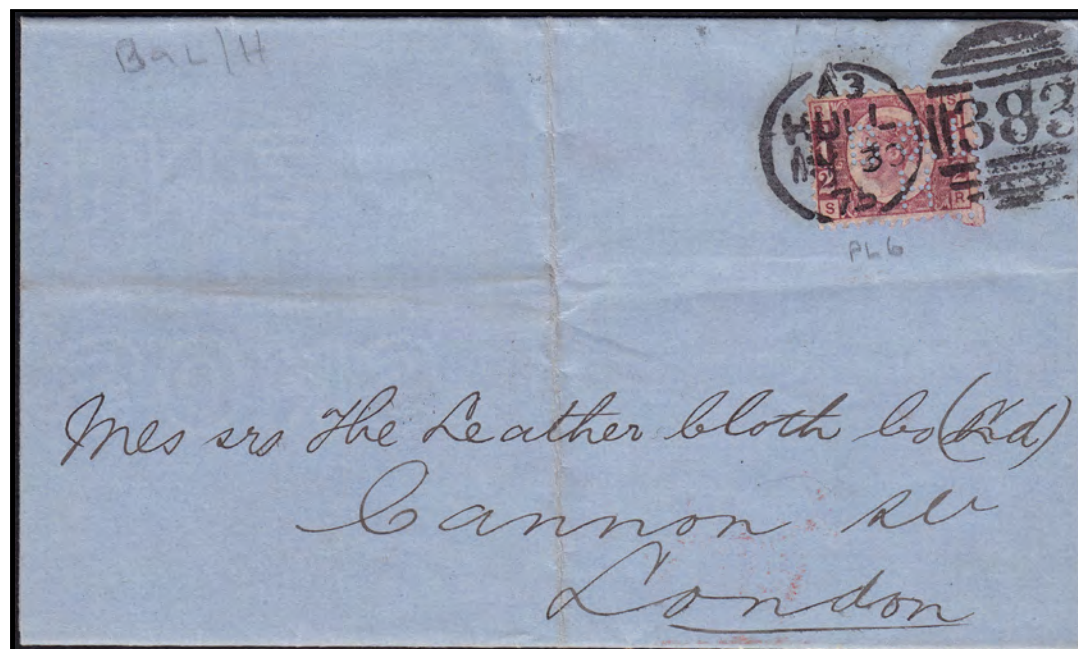 A3
HULL
30
75
383
S
S R
PL 6
Messrs The Leather Cloth Co (Ld)
Cannon
London